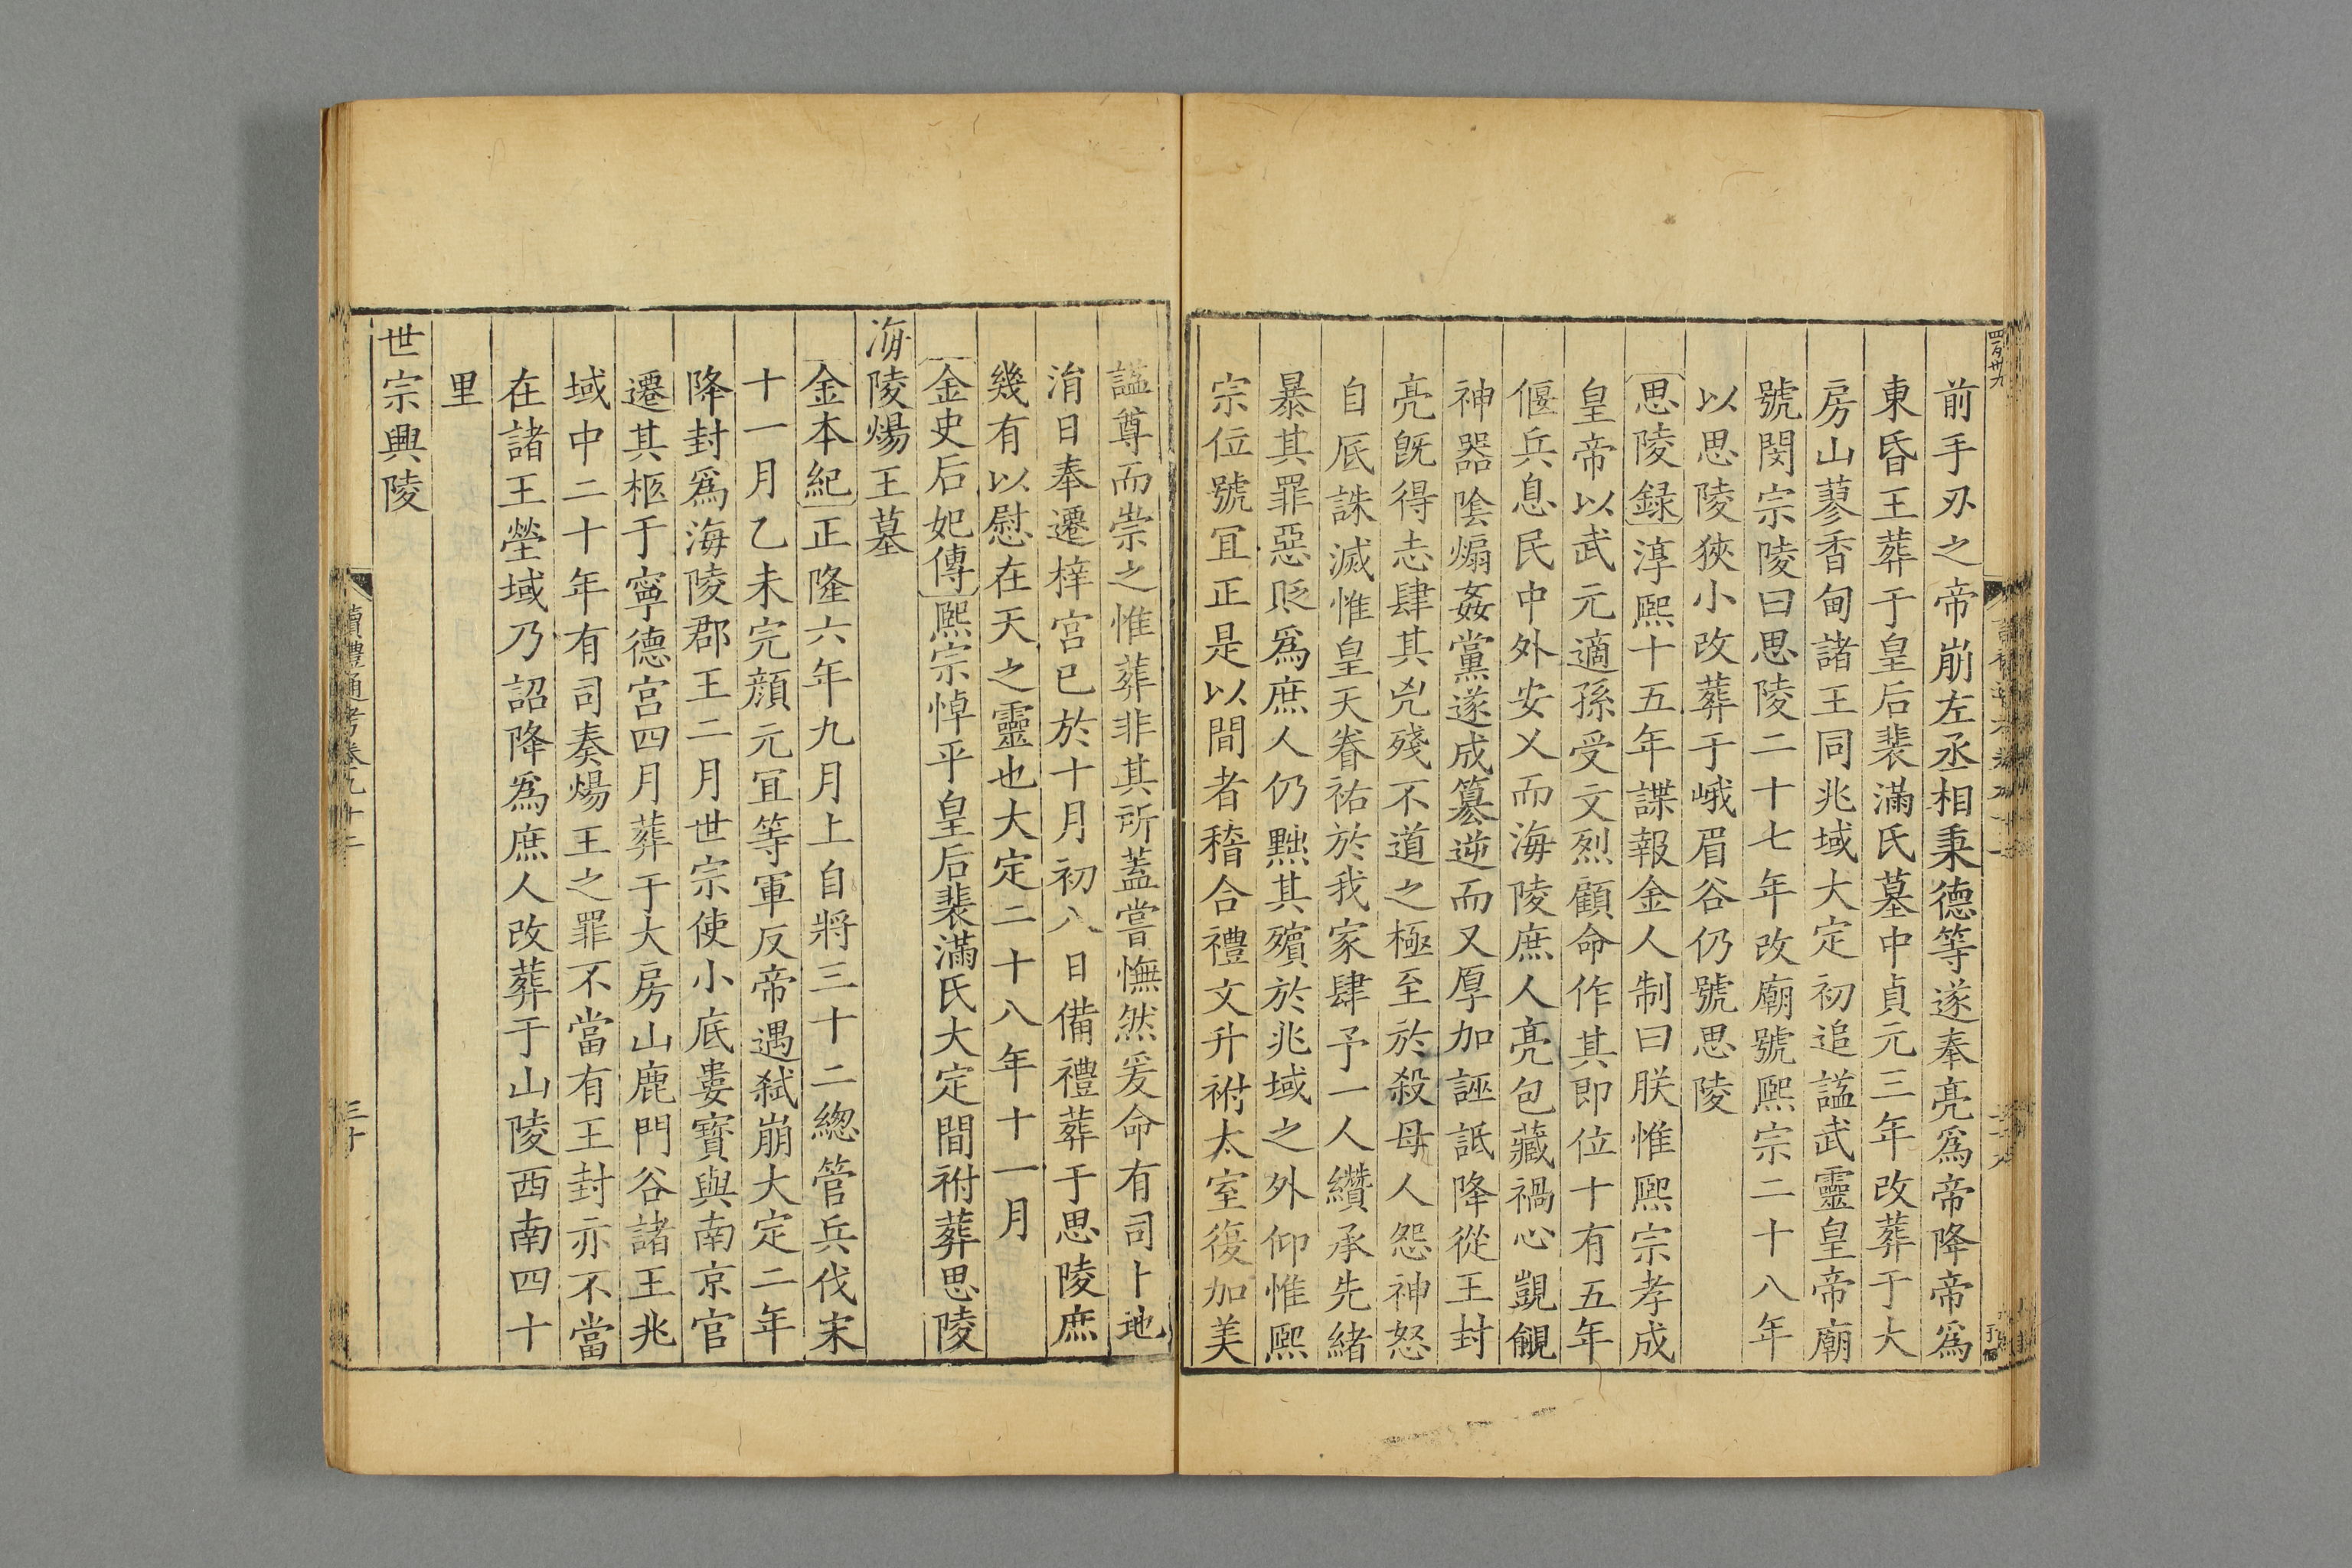 前手刃之帝崩左丞相秉德等遂奉亮爲帝降帝爲
東昏王葬于皇后裴滿氏墓中貞元三年改葬于大
房山蓼香甸諸王同兆域大定初追諡武靈皇帝廟
號閔宗陵曰思陵二十七年改廟號熙宗二十八年
以思陵狹小改葬于峨眉谷仍號思陵
思陵録淳熙十五年諜報金人制曰朕惟熙宗孝成
皇帝以武元適孫受文烈顧命作其即位十有五年
偃兵息民中外安乂而海陵庶人亮包藏禍心覬覦
神器陰煽姦黨遂成簒逆而又厚加誣詆降從王封
亮旣得志肆其兇殘不道之極至於殺母人怨神怒
自底誅滅惟皇天眷祐於我家肆予一人纘承先緒
暴其罪惡貶爲庶人仍黜其殯於兆域之外仰惟熙
宗位號宜正是以間者稽合禮文升祔太室復加美
諡尊而崇之惟葬非其所蓋嘗憮然爰命有司卜地
涓日奉遷梓宮已於十月初八日備禮葬于思陵庶
幾有以慰在天之靈也大定二十八年十一月
金史后妃傳熙宗悼平皇后裴滿氏大定間祔葬思陵
海陵煬王墓
金本紀正隆六年九月上自將三十二總管兵伐宋
十一月乙未完顔元宜等軍反帝遇弑崩大定二年
降封爲海陵郡王二月世宗使小底婁寳與南京官
遷其柩于寧德宮四月葬于大房山鹿門谷諸王兆
域中二十年有司奏煬王之罪不當有王封亦不當
在諸王塋域乃詔降爲庶人改葬于山陵西南四十
里
世宗興陵
讀禮通考卷九十二
三十